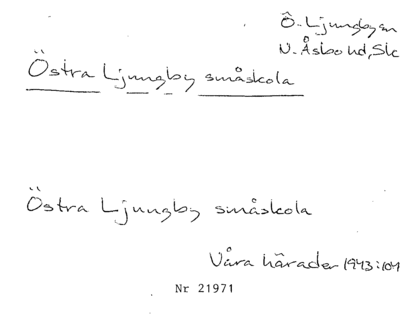 Ö. Ljungby sn
N. Åsbo hd, Sk
Östra Ljungby småskola
Östra Ljungby småskola
Våra härader 1943:104
Nr 21971